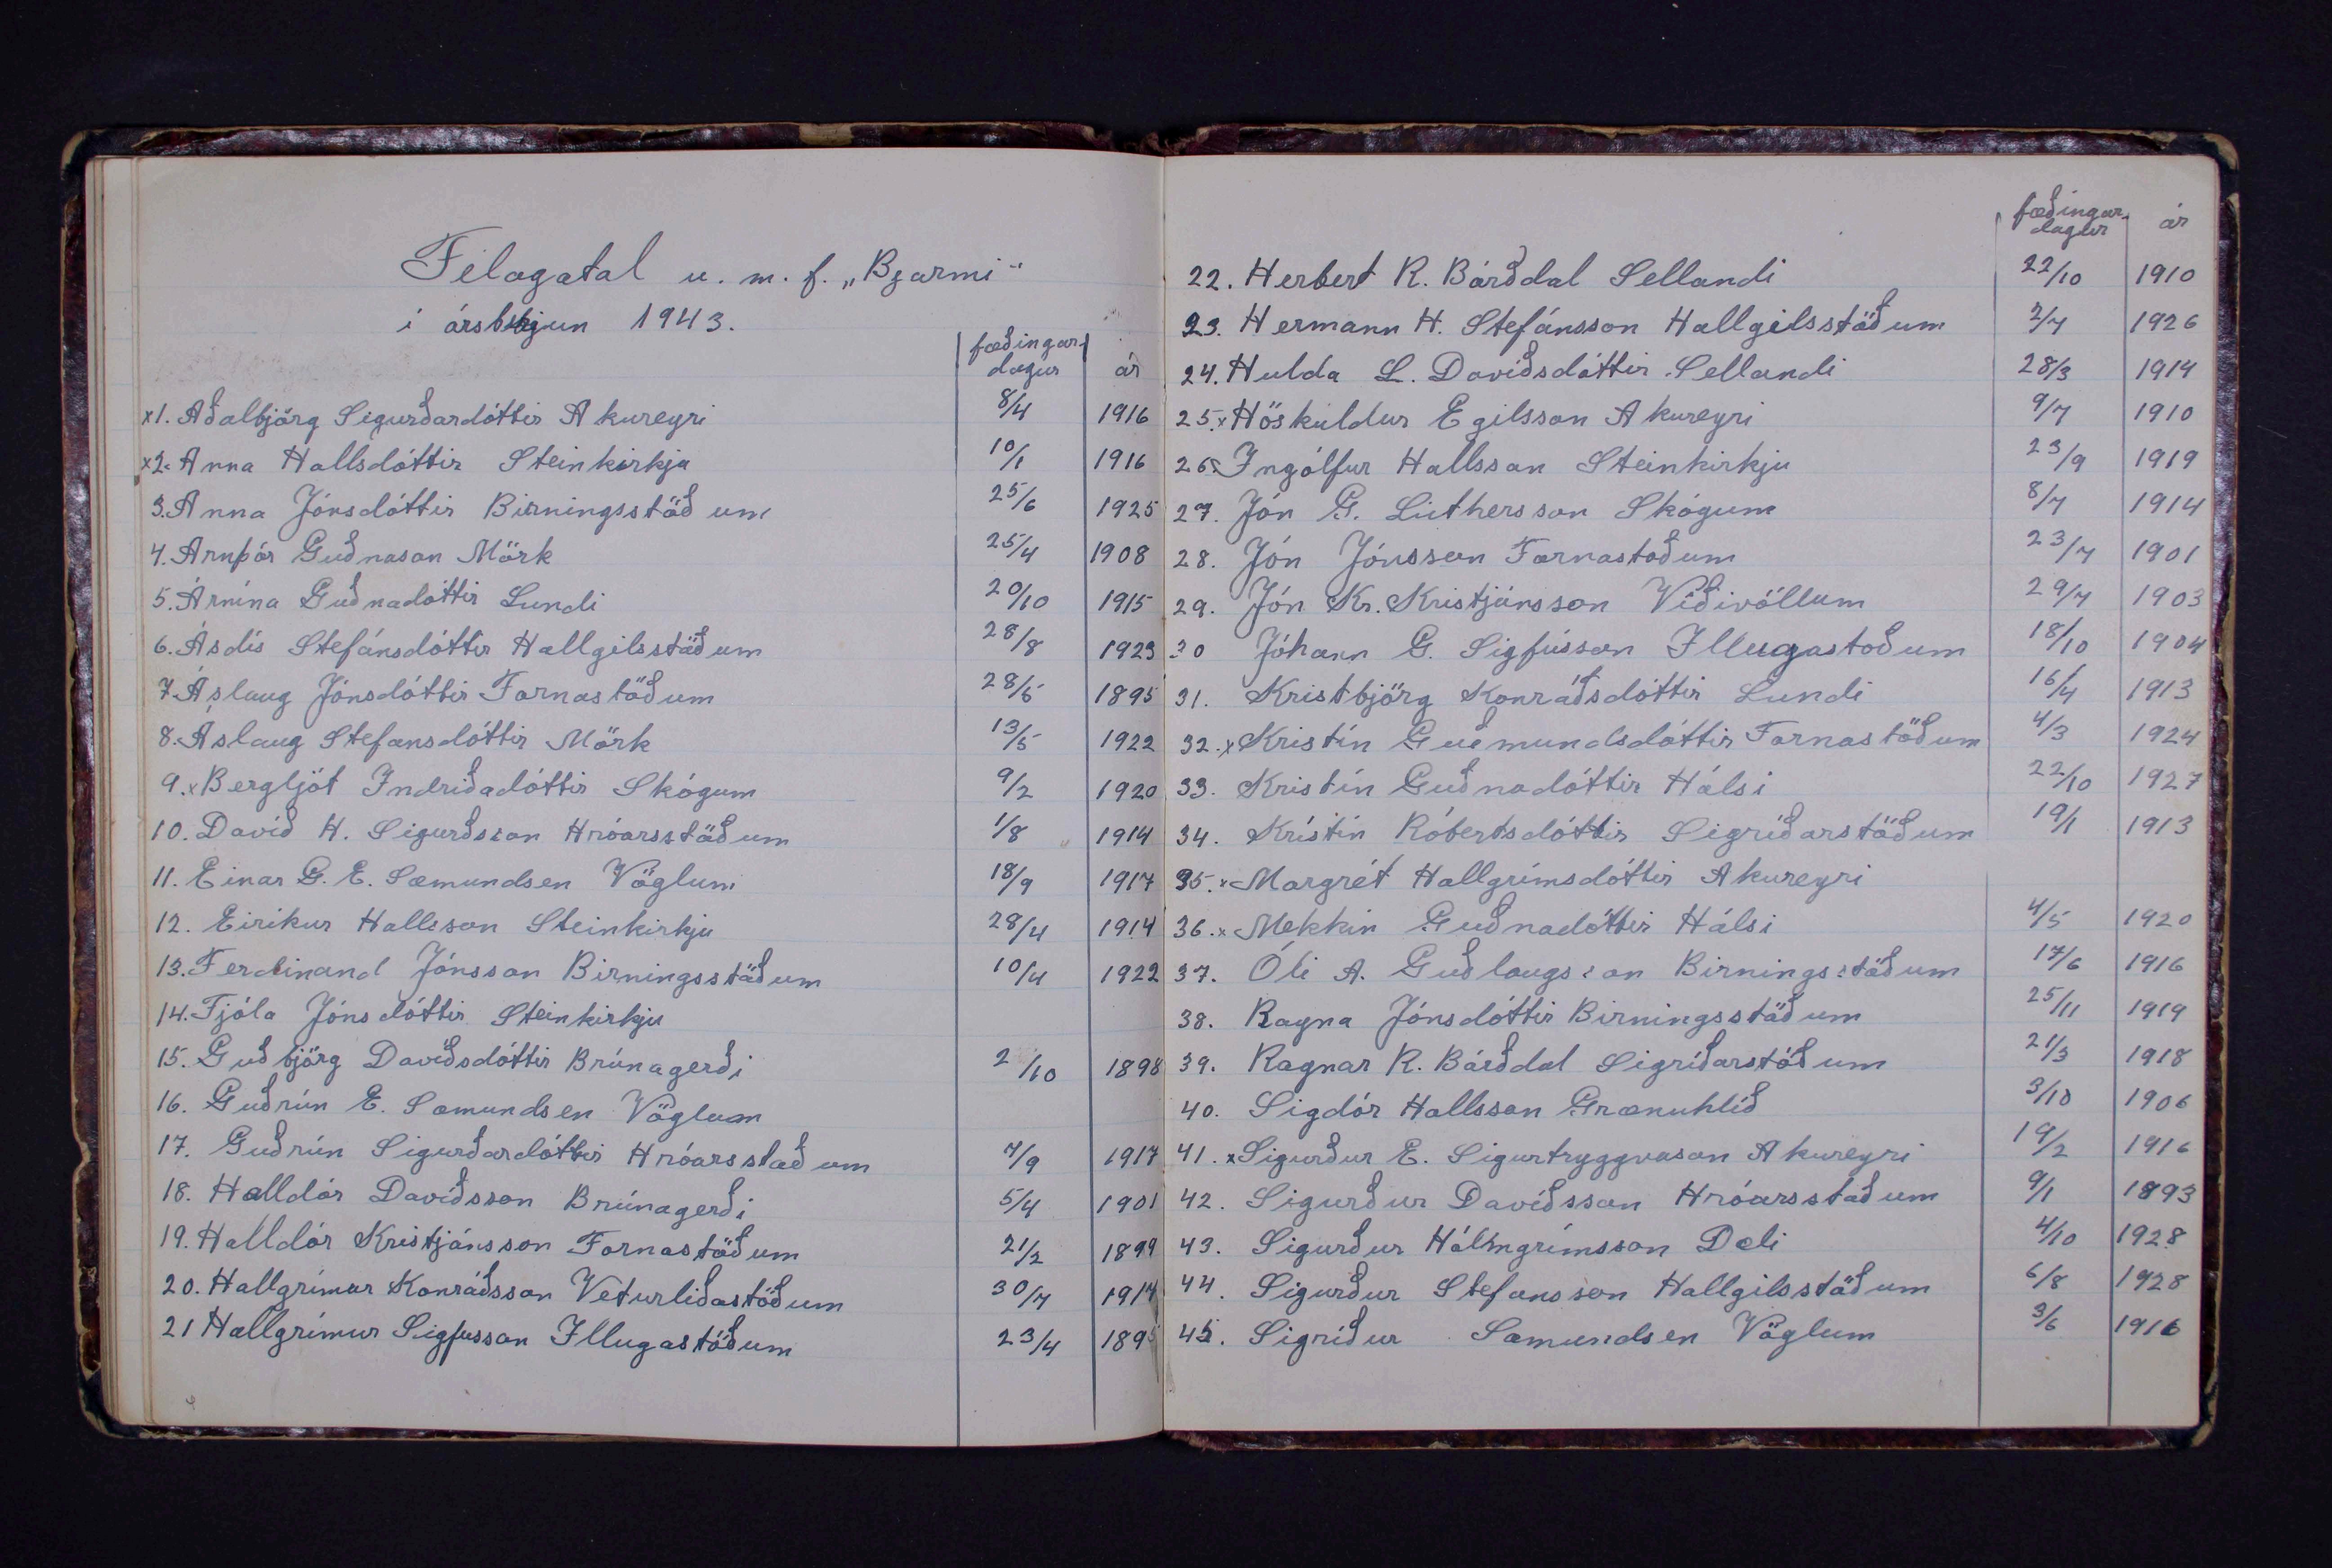 Félagatal u. m. f. „Bjarmi"
í ársbyrjun 1943.
fæðingar-
dagur ár
x1. Aðalbjörg Sigurðardóttir Akureyri 8/4 1916
x2. Anna Hallsdóttir Steinkirkju 10/1 1916
3. Anna Jónsdóttir Birningsstöðum 25/6 1925
4. Arnþór Guðnason Mörk 25/4 1908
5. Árnína Guðnadóttir Lundi 20/10 1915
6. Ásdís Stefánsdóttir Hallgilsstöðum 28/8 1923
7. Áslaug Jónsdóttir Fornastöðum 28/5 1895
8. Áslaug Stefansdóttir Mörk 13/5 1922
9. x Bergljót Indriðadóttir Skógum 9/2 1920
10. Davíð H. Sigurðsson Hróarsstöðum 1/8 1914
11. Einar G. E. Sæmundsen Vöglum 18/9 1917
12. Eiríkur Hallsson Steinkirkju 28/4 1914
13. Ferdinand Jónsson Birningsstöðum 10/4 1922
14. Fjóla Jónsdóttir Steinkirkju
15. Guðbjörg Davíðsdóttir Brúnagerði 2/10 1898
16. Guðrún E. Sæmundsen Vöglum
17. Guðrún Sigurðardóttir Hróarsstaðum 7/9 1917
18. Halldór Davíðsson Brúnagerði 5/4 1901
19. Halldór Kristjánsson Fornastöðum 21/2 1899
20. Hallgrímur Konráðsson Veturliðastöðum 30/7 1914
21 Hallgrímur Sigfusson Illugastöðum 23/4 1895
fæðingar-
dagur ár
22. Herbert R. Bárðdal Sellandi 22/10 1910
23. Hermann H. Stefánsson Hallgilsstöðum 2/7 1926
24. Hulda L. Davíðsdóttir Sellandi 28/3 1914
25. x Höskuldur Egilsson Akureyri 9/7 1910
26. Ingólfur Hallsson Steinkirkju 23/9 1919
27. Jón G. Lúthersson Skógum 8/7 1914
28. Jón Jónsson Fornastoðum 23/7 1901
29. Jón Kr. Kristjánsson Víðivöllum 29/7 1903
30 Jóhann G. Sigfússon Illugastoðum 18/10 1904
31. Kristbjörg Konráðsdóttir Lundi 16/4 1913
32. x Kristín Guðmundsdóttir Fornastöðum 4/3 1924
33. Kristín Guðnadóttir Hálsi 22/10 1927
34. Kristín Róbertsdóttir Sigríðarstöðum 19/1 1913
35. x Margrét Hallgrímsdóttir Akureyri
36. x Mekkín Guðnadóttir Hálsi 4/5 1920
37. Óli A. Guðlaugsson Birningsstöðum 17/6 1916
38. Ragna Jónsdóttir Birningsstöðum 25/11 1919
39. Ragnar R. Bárðdal Sigríðarstöðum 21/3 1918
40. Sigdór Hallsson Grænuhlíð 3/10 1906
41. x Sigurður E. Sigurtryggvason Akureyri 19/2 1916
42. Sigurður Davíðsson Hróarsstaðum 9/1 1893
43. Sigurður Hólmgrímsson Dæli 4/10 1928
44. Sigurður Stefansson Hallgilsstöðum 6/8 1928
45. Sigríður Sæmundsen Vöglum 3/6 1916